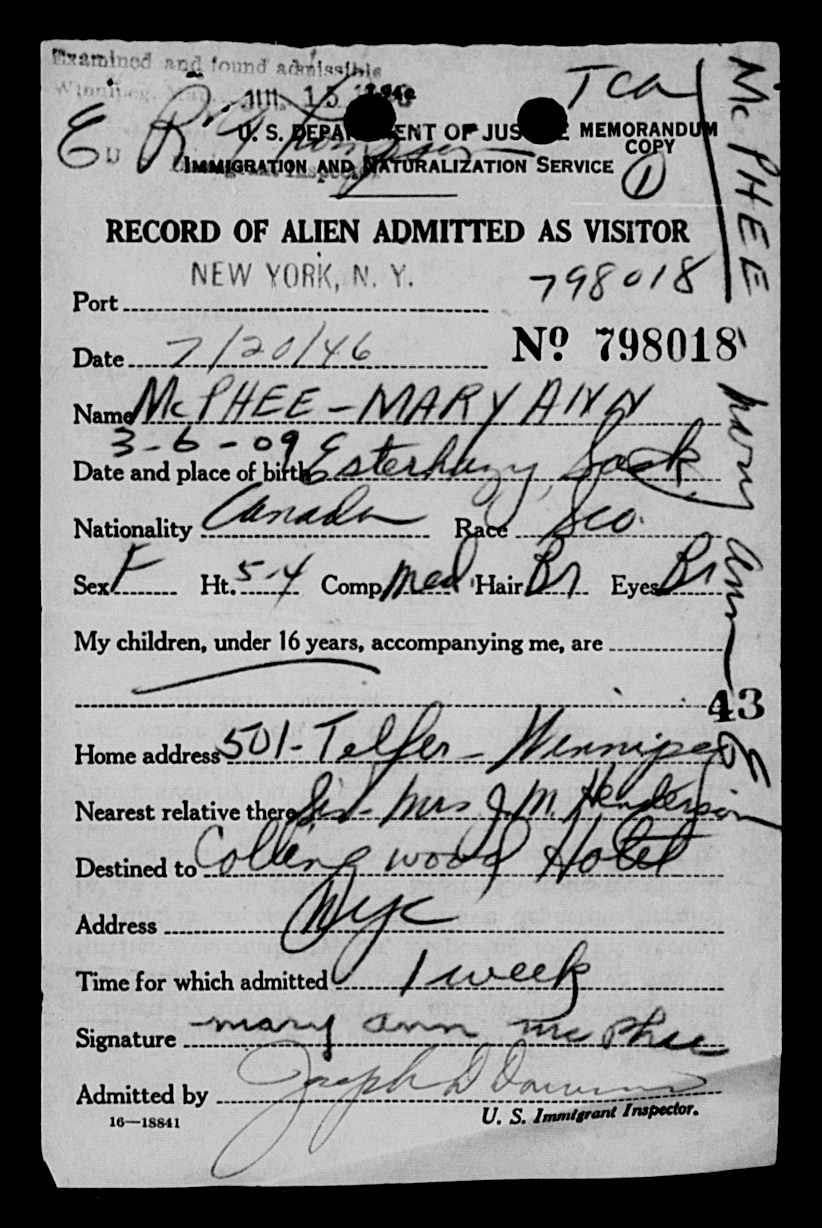 Examined and found admissible
Winnipeg, Man. JUL 15 1946
TCA
U. S. DEPARTMENT OF JUSTICE MEMORANDUM
COPY
IMMIGRATION AND NATURALIZATION SERVICE
1
RECORD OF ALIEN ADMITTED AS VISITOR
NEW YORK, N. Y.
798018
Port
Date 7/20/46 Nº 798018
Name McPHEE - MARY ANN
3-6-09 Esterhazy, Sask
Date and place of birth
Nationality Canada Race Sco.
Sex F Ht. 5-4 Comp. Med Hair Br Eyes Br
My children, under 16 years, accompanying me, are
43
Home address 501 - Telfer - Winnipeg
Nearest relative there Sis - Mrs J. M. Henderson
Destined to Collingwood Hotel
Address NYC
Time for which admitted 1 week
Signature mary ann mcPhee
Admitted by Joseph D
16—18841
U. S. Immigrant Inspector.
McPHEE
mary ann